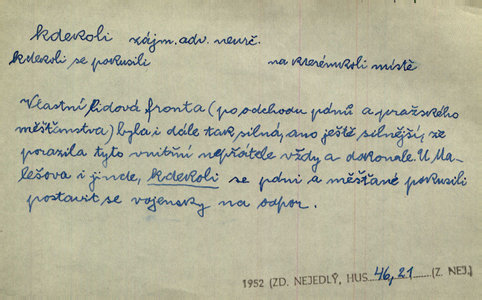 kdekoli zájm. adv. neurč.
kdekoli se pokusili na kterémkoli místě
Vlastní lidová fronta (po odchodu pánů a pražského
měšťanstva) byla i dále tak silná, ano ještě silnější, že
porazila tyto vnitřní nepřátele vždy a dokonale. U Ma-
lešova i jinde, kdekoli se páni a měšťané pokusili
postavit se vojensky na odpor.
1952 (ZD. NEJEDLÝ, HUS. 46, 21 (Z. NEJ.)